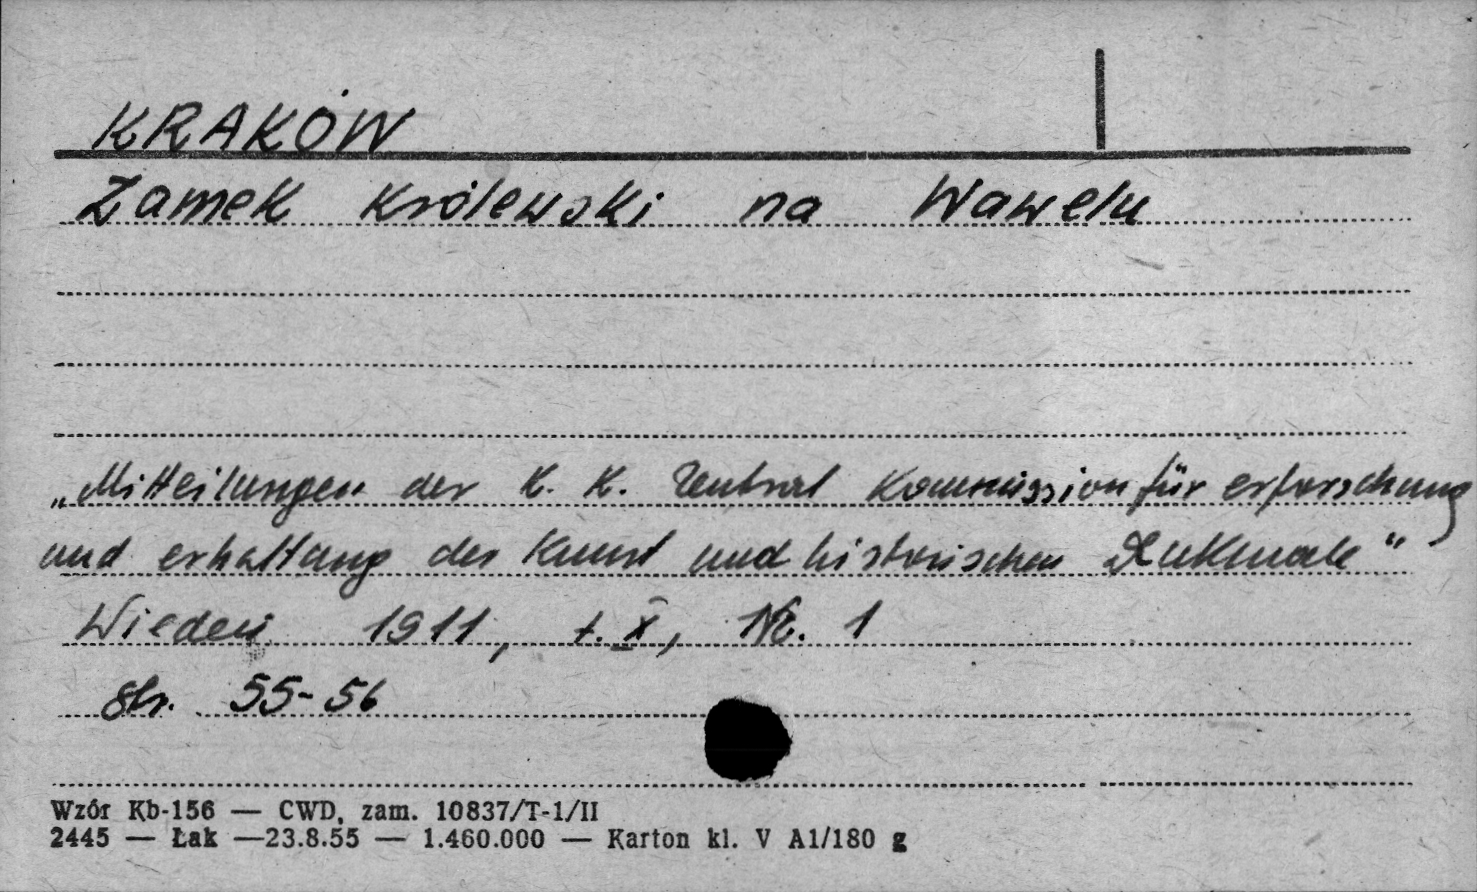 KRAKÓW
Zamek Królewski na Wawelu
„Mitteilungen der K. K. Zentral Kommission für erforschung
und erhaltung der Kunst und historischen Denkmale"
Wiedeń 1911, t. X, Nr. 1
str. 55-56
Wzór Kb-156 — CWD, zam. 10837/T-1/II
2445 — Łak —23.8.55 — 1.460.000 — Karton kl. V A1/180 g